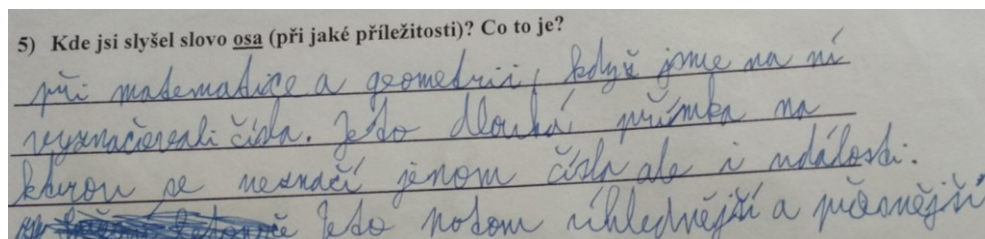 5) Kde jsi slyšel slovo osa (při jaké příležitosti)? Co to je?
při matematice a geometrii, když jsme na ní
vyznačovali čísla. Je to dlouhá přímka na
kterou se neznačí jenom čísla ale i události.
Je to potom úhlednější a přesnější